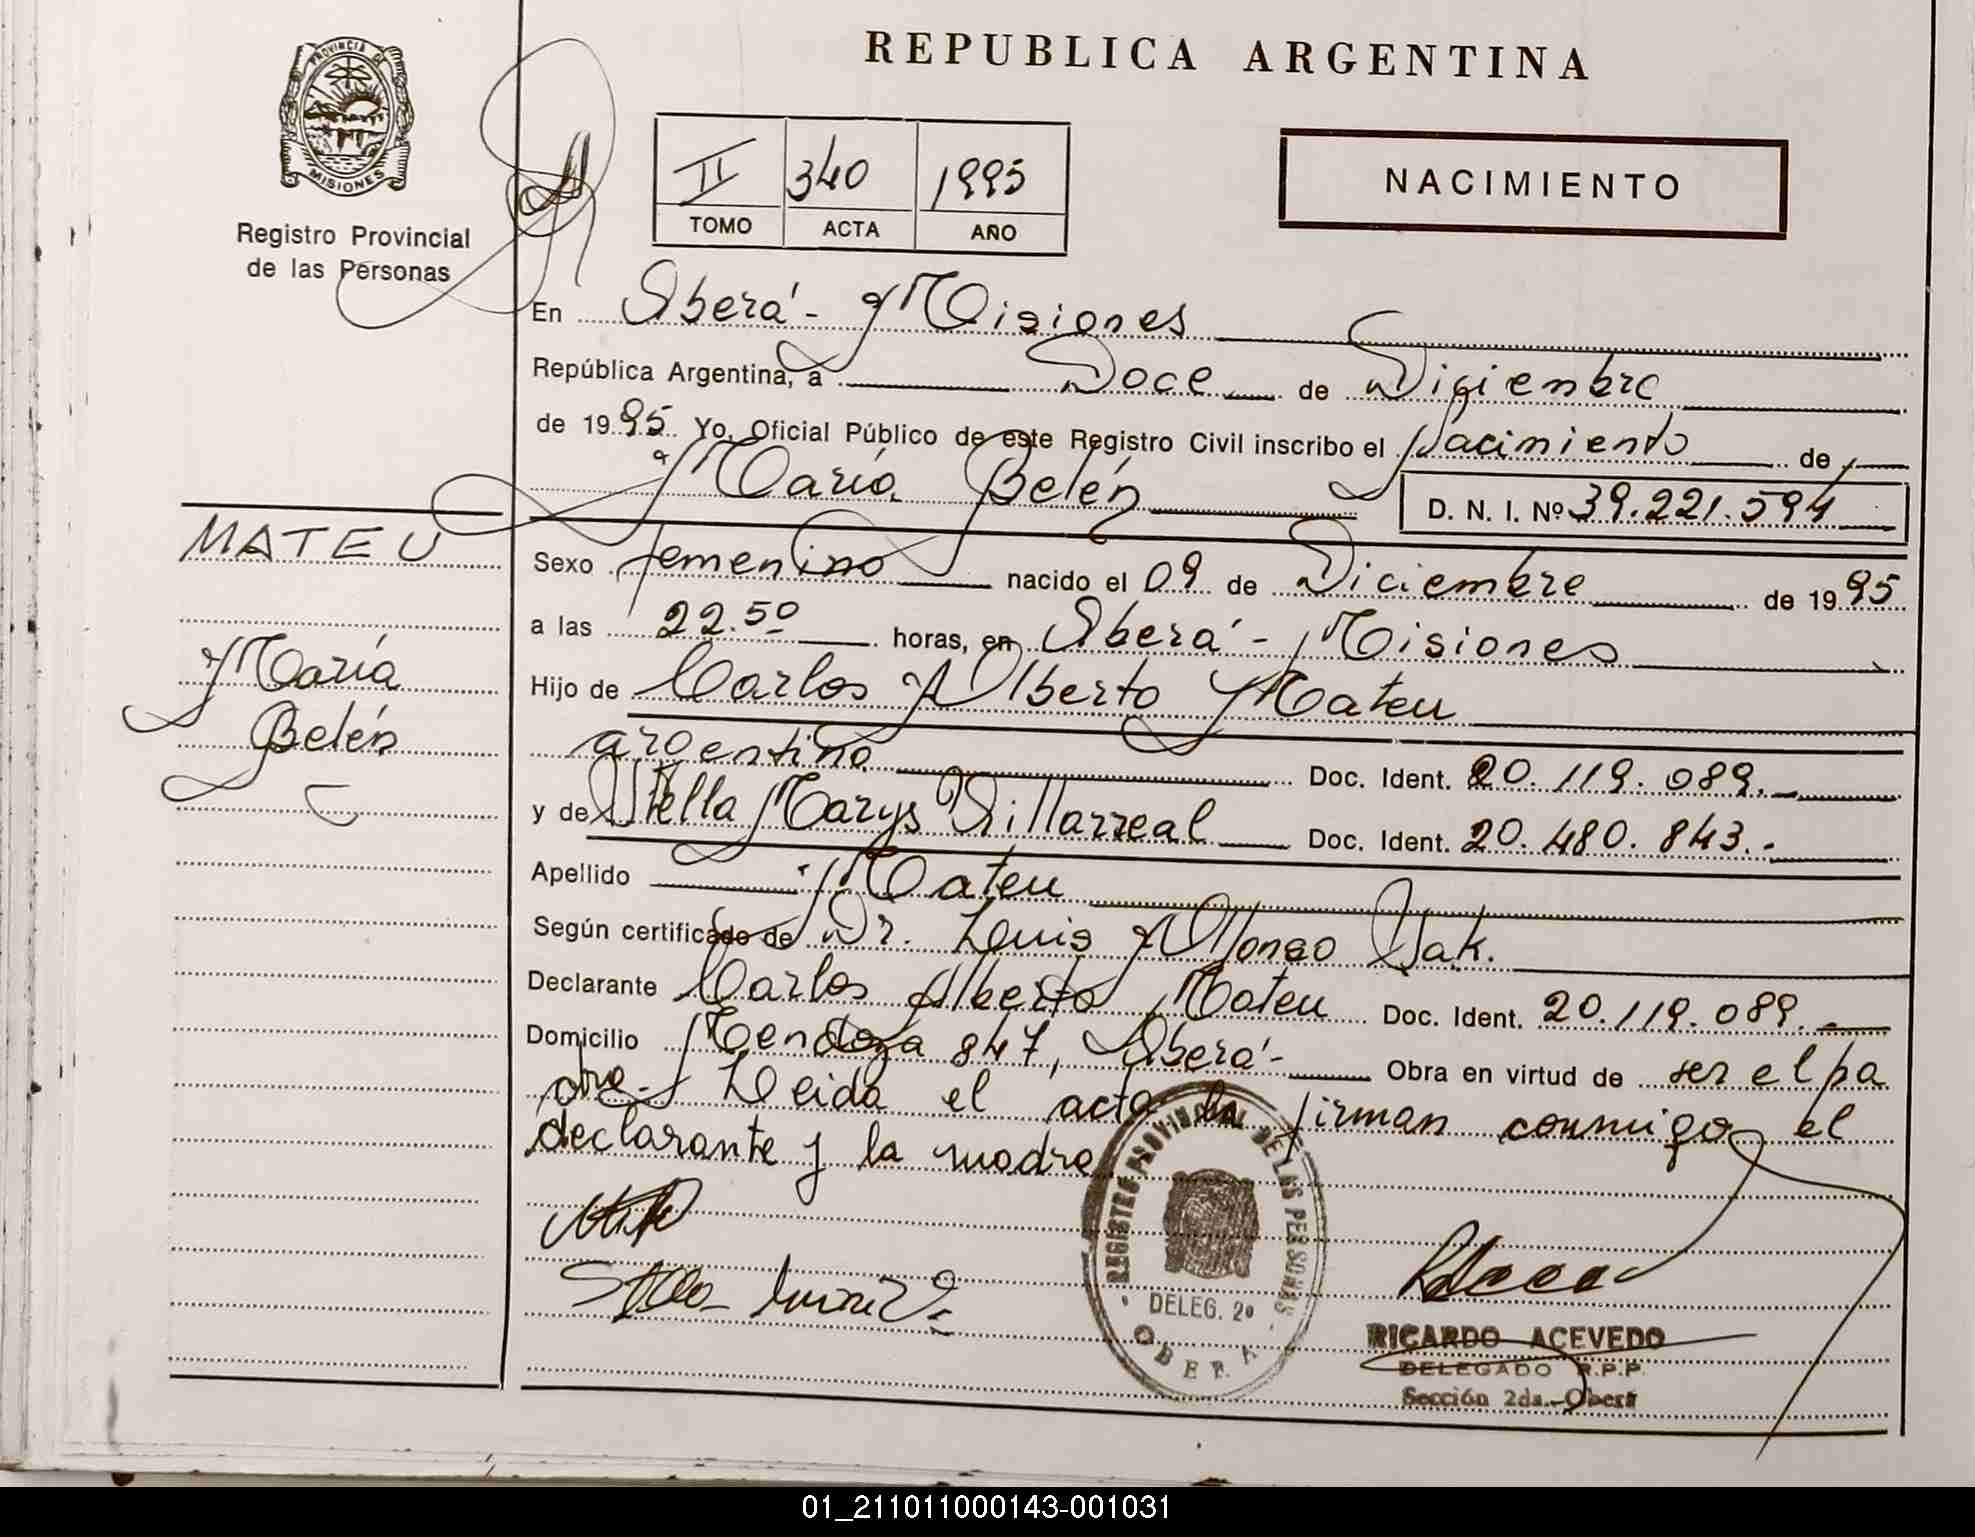 REPUBLICA ARGENTINA
PROVINCIA DE
MISIONES
Registro Provincial
de las Personas
II 340 1995
TOMO ACTA AÑO
NACIMIENTO
En Oberá - Misiones
República Argentina, a Doce de Diciembre
de 1995 Yo, Oficial Público de este Registro Civil inscribo el Nacimiento de
María Belén D. N. I. Nº 39.221.594
MATEU
María
Belén
Sexo femenino nacido el 09 de Diciembre de 1995
a las 22.50 horas, en Oberá - Misiones
Hijo de Carlos Alberto Mateu
argentino Doc. Ident. 20.119.089.-
y de Stella Marys Villarreal Doc. Ident. 20.480.843.-
Apellido Mateu
Según certificado de Dr. Luis Alfonso Yak.
Declarante Carlos Alberto Mateu Doc. Ident. 20.119.089.-
Domicilio Mendoza 847, Oberá - Obra en virtud de ser el pa
dre. Leida el acta la firman conmigo el
declarante y la madre
REGISTRO PROVINCIAL DE LAS PERSONAS
DELEG. 2º
OBERA
RICARDO ACEVEDO
DELEGADO R.P.P.
Sección 2da.-Oberá
01_211011000143-001031